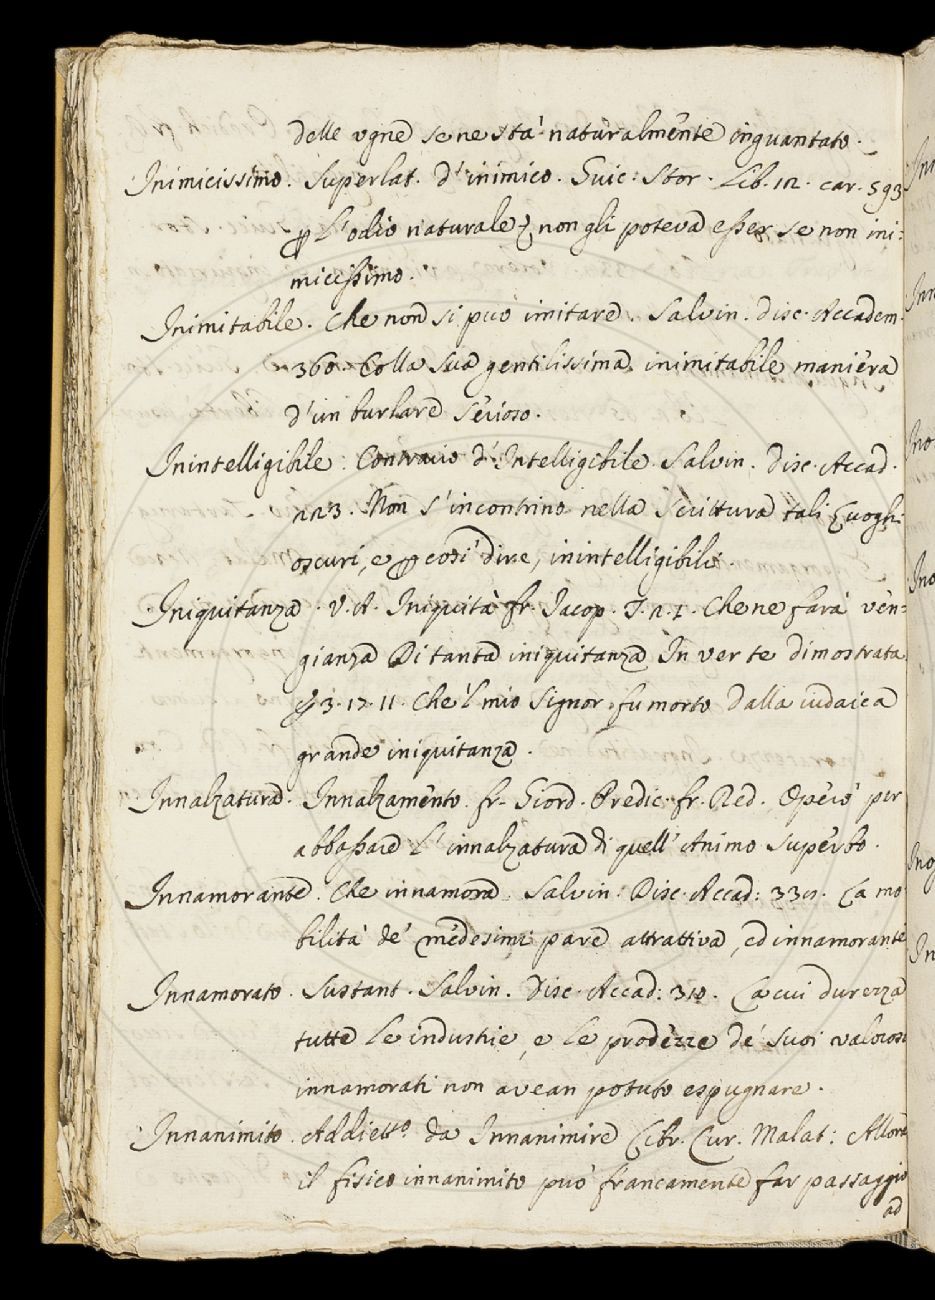 delle ugne se ne stà naturalmente inguantato.
Inimicissimo. Superlat. d'inimico. Guic: Stor. Lib. 12. car. 593
L'odio naturale, non gli poteva esser se non ini:
micissimo.
Inimitabile. Che non si può imitare. Salvin. disc. Accadem.
360. Colla sua gentilissima, inimitabile maniera
d'un burlare serioso.
Inintelligibile. Contrario d'Intelligibile. Salvin. Disc. Accad.
223. Non s'incontrino nella Scrittura tali luoghi
oscuri, e così dire, inintelligibili.
Iniquitanza. V. A. Iniquità fr. Jacop. T. 2. 1. Che ne farà ven=
gianza Di tanta iniquitanza In ver te dimostrata
3. 17. 11. Che'l mio Signor fu morto Dalla iudaica
grande iniquitanza.
Innalzatura. Innalzamento. fr. Giord. Predic. fr. Red. Operò per
abbassare L'innalzatura di quell'Animo superbo.
Innamorante. Che innamora. Salvin: Disc. Accad: La no
bilità de' medesimi pare attrattiva, ed innamorante
Innamorato. Sustant. Salvin. Disc. Accad: La cui durezza
tutte le industrie, e le prodezze de' suoi valorosi
innamorati non avean potuto espugnare.
Innanimito. Addiett.º da Innanimire Libr. Cur. Malat: Allora
il fisico innanimito può francamente far passaggio
ad